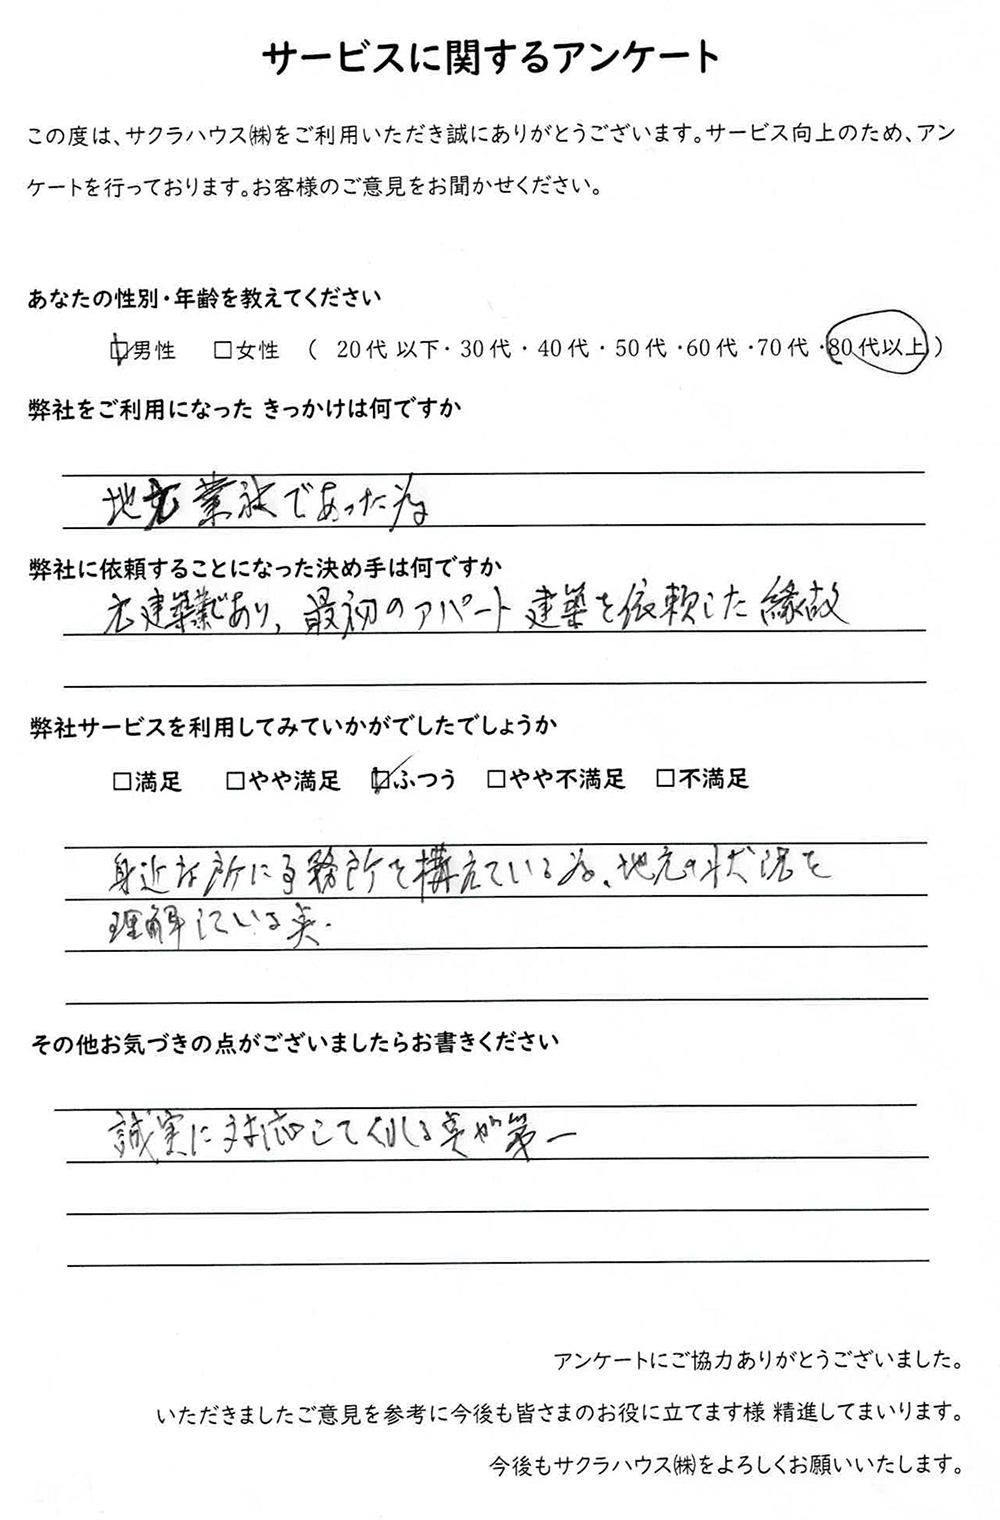 サービスに関するアンケート
この度は、サクラハウス㈱をご利用いただき誠にありがとうございます。サービス向上のため、アン
ケートを行っております。お客様のご意見をお聞かせください。
あなたの性別・年齢を教えてください
☑男性 □女性 ( 20代 以下・30代・40代・50代・60代・70代・80代以上)
弊社をご利用になった きっかけは何ですか
地元業社であった為
弊社に依頼することになった決め手は何ですか
元建築業であり、最初のアパート建築を依頼した縁故
弊社サービスを利用してみていかがでしたでしょうか
□満足 □やや満足 ☑ふつう □やや不満足 □不満足
身近な所に事務所を構えている為、地元の状況を
理解している点.
その他お気づきの点がございましたらお書きください
誠実に対応してくれる点が第一
アンケートにご協力ありがとうございました。
いただきましたご意見を参考に今後も皆さまのお役に立てます様 精進してまいります。
今後もサクラハウス㈱をよろしくお願いいたします。